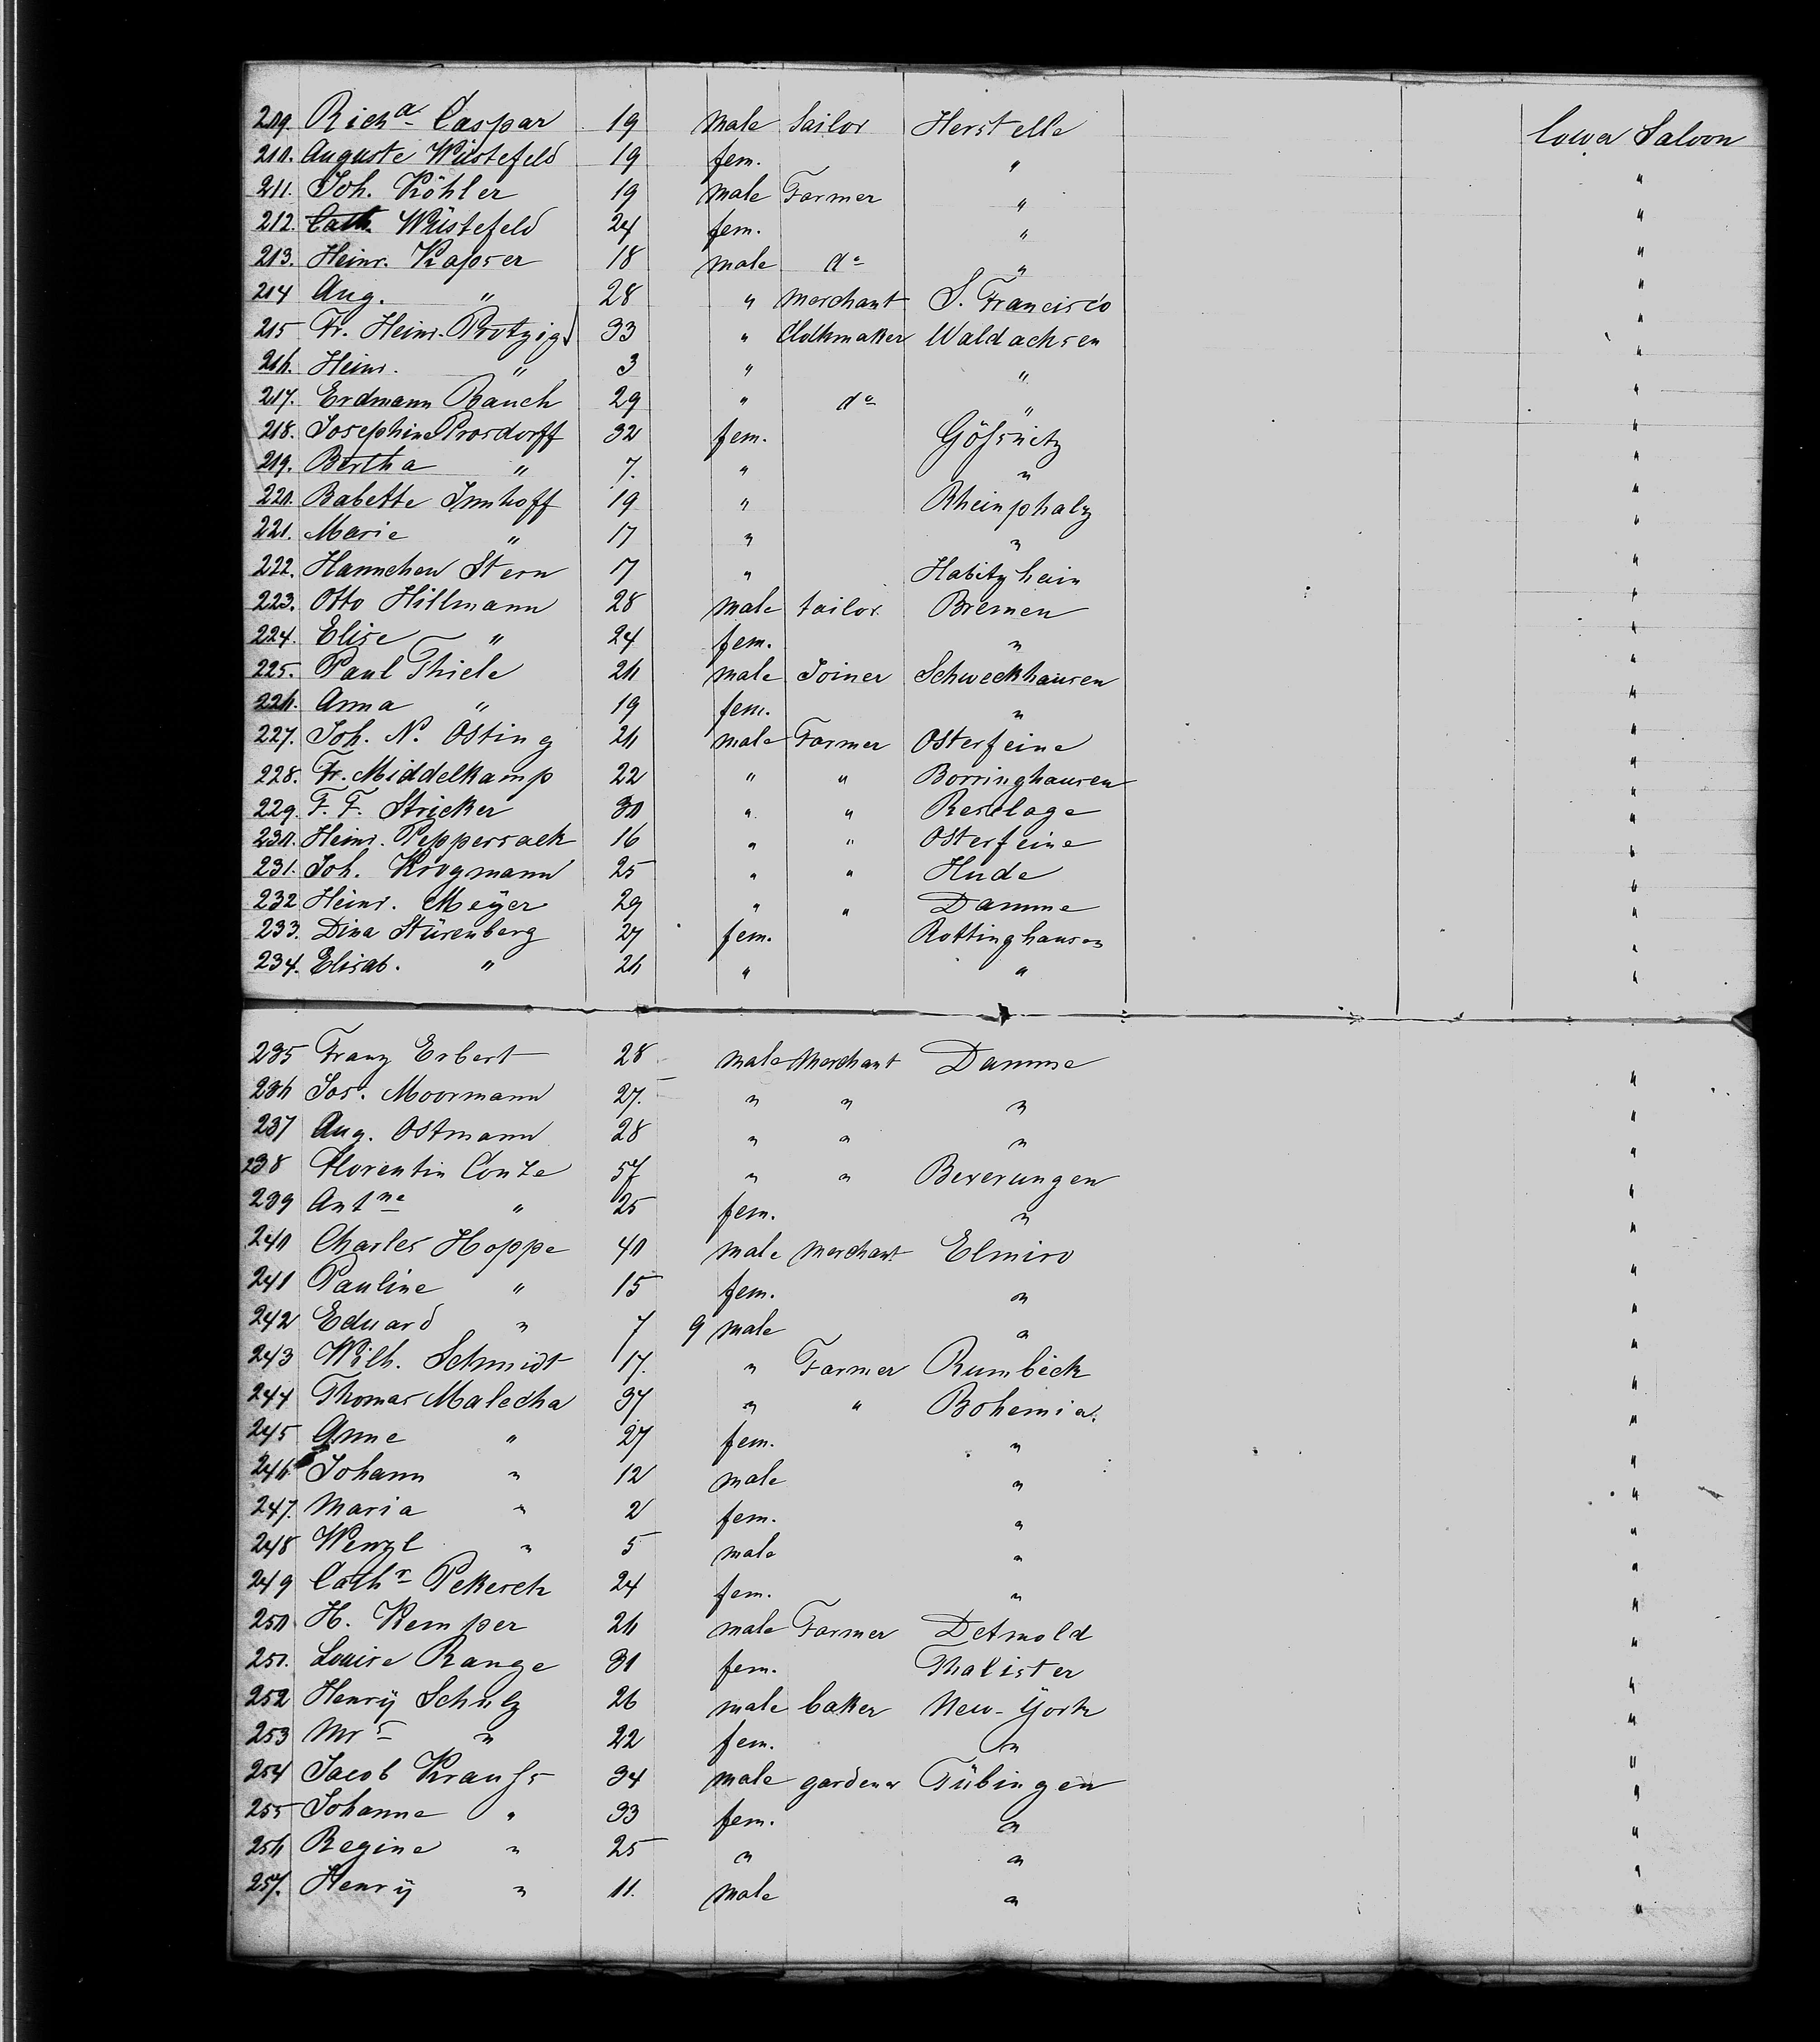 209. Rich<sup>d</sup> Caspar 19 male Sailor Herstelle lower Saloon
210. Auguste Wüstefeld 19 fem. " "
211. Joh. Köhler 19 male Farmer " "
212. Cath. Wüstefeld 24 fem. " "
213. Heinr. Kapser 18 male do " "
214 Aug. " 28 " merchant S. Francisco "
215 Fr. Heinr. Protzigd 33 " Clothmaker Waldachsen "
216. Heinr. " 3 " " "
217. Erdmann Rauch 29 " do " "
218. Josephine Prosdorff 32 fem. Gößnitz "
219. Bertha " 7. " " "
220. Babette Imhoff 19 " Rheinphalz "
221. Marie " 17 " " "
222. Hannchen Stern 17 " Habitzheim "
223. Otto Hillmann 28 male tailor Bremen "
224. Elise " 24 fem. " "
225. Paul Thiele 26 male Joiner Schweckhausen "
226. Anna " 19 fem. " "
227. Joh. N. Osting 26 male Farmer Osterfeine "
228. Fr. Middelkamp 22 " " Borringhausen "
229. F. F. Stricker 30 " " Reselage "
230. Heinr. Peppersack 16 " " Osterfeine "
231. Joh. Krogmann 25 " " Hude "
232 Heinr. Meÿer 29 " " Damme "
233. Dina Stürenberg 27 fem. Rottinghausen "
234. Elisab. " 26 " " "
235 Franz Erbert 28 male Merchant Damme "
236 Jos. Moormann 27. " " " "
237 Aug. Ostmann 28 " " " "
238 Florentin Conze 57 " " Beverungen "
239 Ant<sup>ne</sup> " 25 fem. " "
240 Charles Hoppe 40 male Merchant Elmiro "
241 Pauline " 15 fem. " "
242 Eduard " 7 9 male " "
243 Wilh. Schmidt 17. " Farmer Rumbeck "
244 Thomas Malecha 37 " " Bohemia. "
245 Anne " 27 fem. " "
246 Johann " 12 male " "
247. Maria " 2 fem. " "
248 Wenzl " 5 male " "
249 Cath<sup>r</sup> Pekerek 24 fem. " "
250 H. Kemper 26 male Farmer Detmold "
251. Louise Range 31 fem. Thalister "
252 Henrÿ Schulz 26 male baker New-York "
253 Mrs " 22 fem. " "
254 Jacob Krauss 34 male gardener Tübingen "
255 Johanne " 33 fem. " "
256 Regine " 25 " " "
257. Henrÿ " 11. male " "